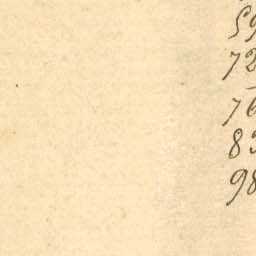 59
72
76
83
98